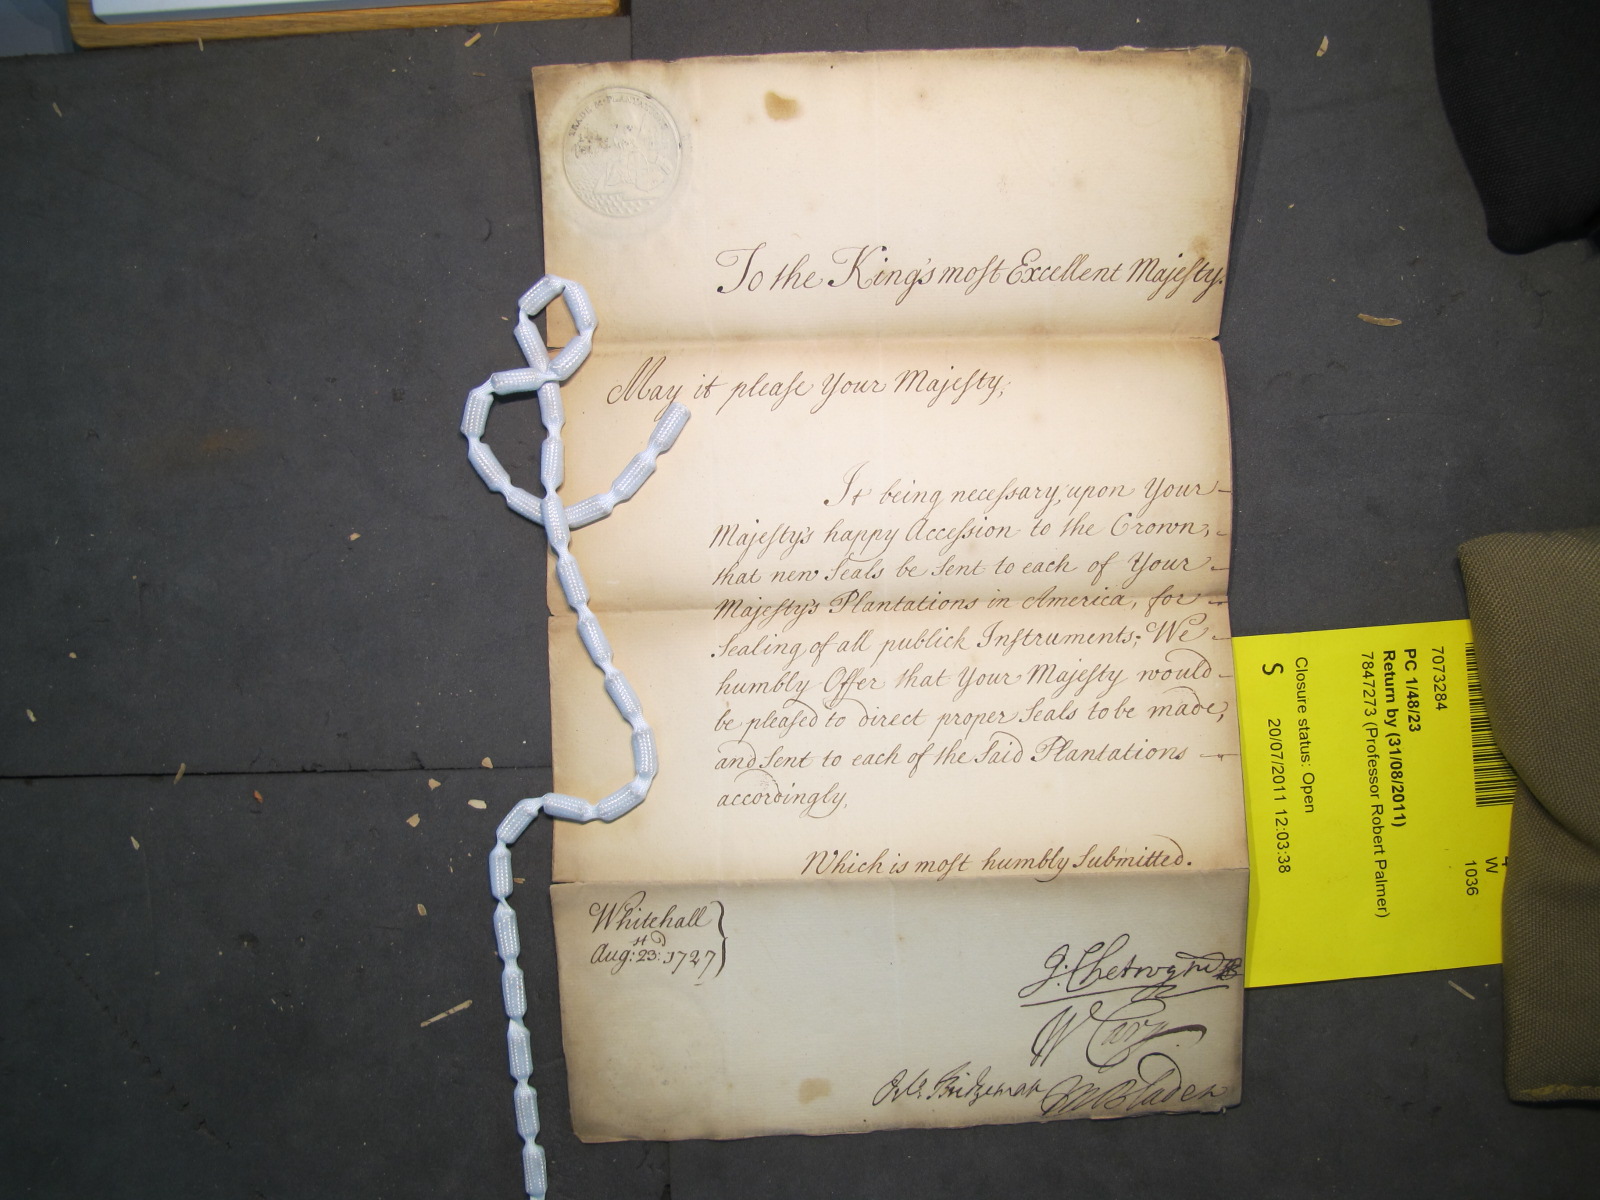 TRADE & PLANTAT
To the King's most Excellent Majesty.
May it please Your Majesty;
It being necessary, upon Your
Majesty's happy Accession to the Crown,
that new Seals be Sent to each of Your
Majesty's Plantations in America, for
Sealing of all publick Instruments; We
humbly Offer that Your Majesty would
be pleased to direct proper Seals to be made,
and Sent to each of the Said Plantations
accordingly.
Which is most humbly Submitted.
Whitehall
Aug: 23d: 1727
J: Chetwynd
W Cary
Orl: Bridgeman
M Bladen
7073284
PC 1/48/23
Return by (31/08/2011)
7847273 (Professor Robert Palmer)
Closure status: Open
S 20/07/2011 12:03:38
W
1036